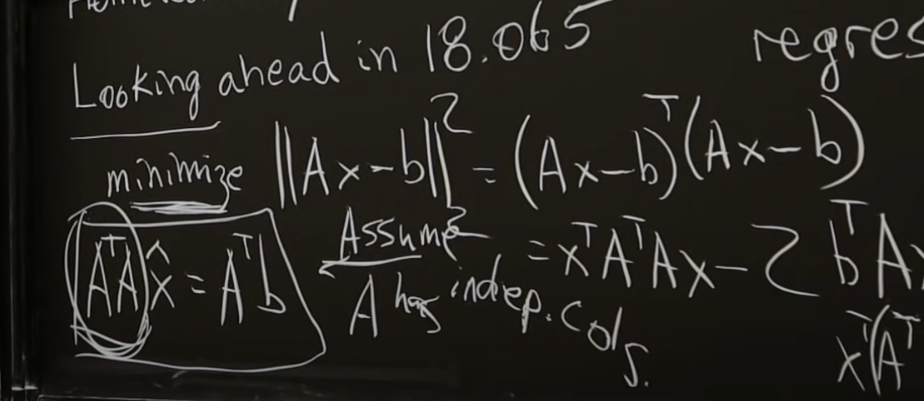 Looking ahead in 18.065
regres
minimize ||Ax-b||² = (Ax-b)ᵀ(Ax-b)
AᵀAx̂ = Aᵀb
Assume
A has indep. cols.
= xᵀAᵀAx - 2 bᵀAx
xᵀ(Aᵀ